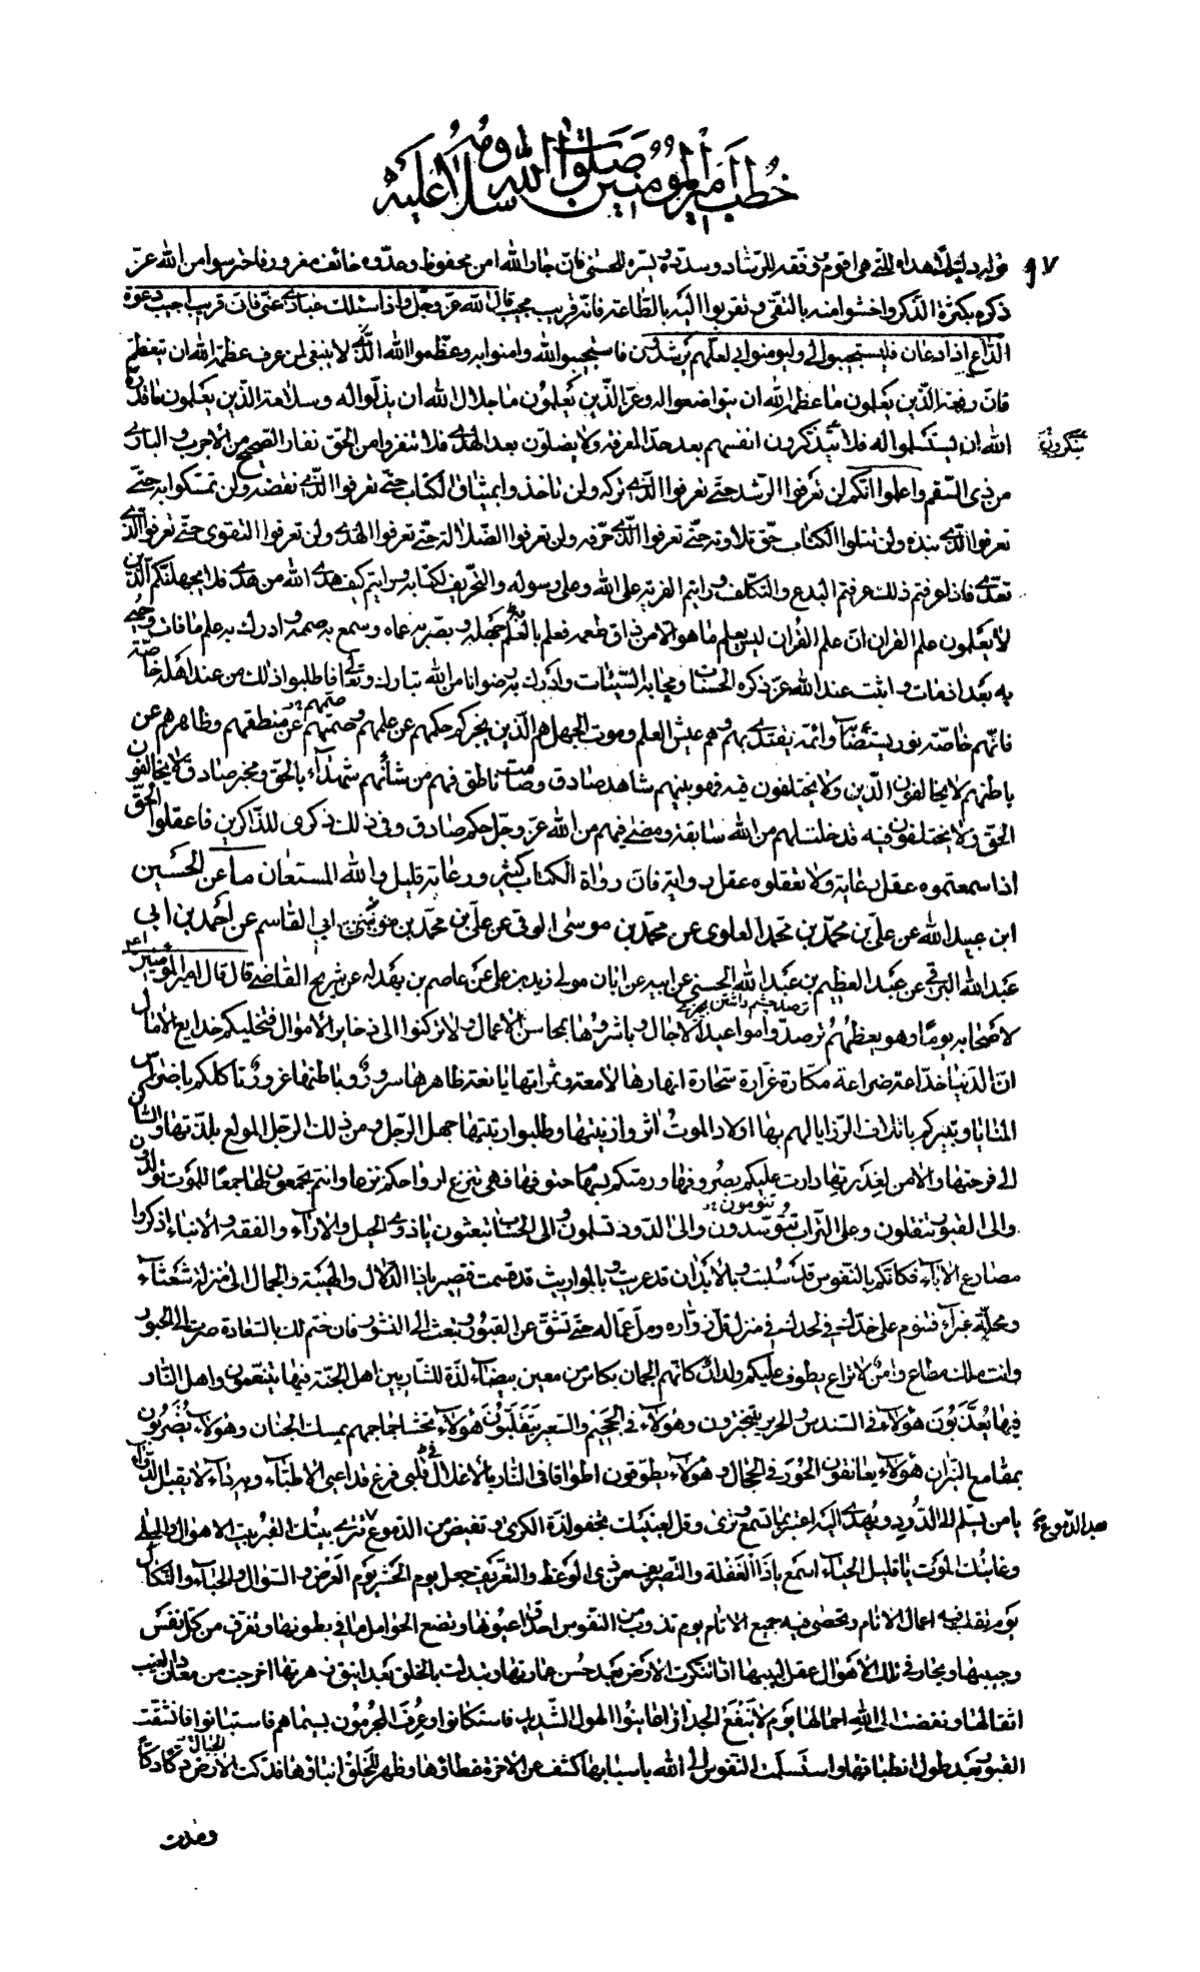 خطب أمير المؤمنين صلوات الله وسلامه عليه
٩٧
هداه للتي هي اقوم وفقه للرشاد وسدده ويسره للحسنى فان جار الله امن محفوظ وعدوه خائف مغرور فاحترسوا من الله عز
ذكره بكثرة الذكر واخشوا منه بالتقى وتقربوا اليه بالطاعة فانه قريب مجيب قال الله عز وجل واذا سئلك عبادي عنى فانى قريب اجيب دعوة
الداع اذا دعان فليستجيبوا لي وليومنوا بي لعلهم يرشدون فاستجيبوا لله وامنوا به وعظموا الله الذي لا ينبغى لمن عرف عظمة الله ان يتعظم
فان رفعة الذين يعلمون ما عظمة الله ان يتواضعوا له وعز الذين يعلمون ما جلال الله ان يذلوا له وسلامة الذين يعلمون ما قدرة
الله ان يستسلموا له فلا ينكرون انفسهم بعد حد المعرفة ولا يضلون بعد الهدى فلا تنفروا من الحق نفار الصحيح من الاجرب والبارى
من ذى السقم واعلموا انكم لن تعرفوا الرشد حتى تعرفوا الذي تركه ولن تاخذوا بميثاق الكتاب حتى تعرفوا الذي نقضه ولن تمسكوا به حتى
تعرفوا الذي نبذه ولن تتلوا الكتاب حق تلاوته حتى تعرفوا الذي حرفه ولن تعرفوا الضلالة حتى تعرفوا الهدى ولن تعرفوا التقوى حتى تعرفوا الذي
تعدى فاذا عرفتم ذلك عرفتم البدع والتكلف ورايتم الفرية على الله وعلى رسوله والتحريف لكتابه ورايتم كيف هدى الله من هدى فلا يجهلنكم الذين
لا يعلمون علم القران ان علم القران ليس يعلم ما هو الا من ذاق طعمه فعلم بالعلم جهله وبصر به عماه وسمع به صممه وادرك به علم ما فات وحيى
به بعد اذ مات واثبت عند الله عز ذكره الحسنات ومحا به السيئات وادرك به رضوانا من الله تبارك وتعالى فاطلبوا ذلك من عند اهله خاصة
فانهم خاصة نور يستضاء به وائمة يقتدى بهم وهم عيش العلم وموت الجهل هم الذين يخبركم حكمهم عن علمهم وصمتهم عن منطقهم وظاهرهم عن
باطنهم لا يخالفون الدين ولا يختلفون فيه فهو بينهم شاهد صادق وصامت ناطق فهم من شأنهم شهداء بالحق ومخبر صادق لا يخالفون
الحق ولا يختلفون فيه قد خلت لهم من الله سابقة ومضى فيهم من الله عز وجل حكم صادق وفى ذلك ذكرى للذاكرين فاعقلوا الحق
اذا سمعتموه عقل رعاية ولا تعقلوه عقل رواية فان رواة الكتاب كثير ورعاته قليل والله المستعان عن الحسين
ابن عبيد الله عن علي بن محمد بن محمد العلوى عن محمد بن موسى الرقى عن علي بن محمد بن ابي القاسم عن احمد بن ابي
عبد الله البرقي عن عبد العظيم بن عبد الله الحسنى عن ابيه عن ابان مولى زيد بن على عن عاصم بن بهدله عن شريح القاضى قال قال امير المومنين
لاصحابه يوما وهو يعظهم ترصدوا مواعيد الاجال وباشروها بمحاسن الاعمال ولا تركنوا الى ذخاير الاموال فتخليكم خدايع الامال
ان الدنيا خداعة صراعة مكارة غرارة سحارة انهارها لامعة وثمراتها يانعة ظاهرها سرور وباطنها غرور تاكلكم باضراس
المنايا وتبيركم باتلاف الرزايا لهم بها اولاد الموت اثروا زينتها وطلبوا رتبتها جهل الرجل ومن ذلك الرجل المولع بلذتها والساكن
الى فرحتها والامن لغدرتها دارت عليكم بصروفها ورمتكم بسهام حتوفها فهى تنزع ارواحكم نزعا وانتم تجمعون لها جمعا للموت تولدون
والى القبور تنقلون وعلى التراب تتوسدون والى الدود تسلمون والى الحساب تبعثون ياذوى الحيل والاراء والفقه والانباء اذكروا
مصارع الاباء فكانكم بالنفوس قد سلبت وبالابدان قد عريت وبالمواريث قد قسمت فتصير ياذا الدلال والهيئة والجمال الى منزلة شعثاء
ومحلة غبراء فتنوم على خدك في لحدك في منزل قل زواره ومل عماله حتى تشق عن القبور وتبعث الى النشور فان ختم لك بالسعادة صرت الى الحبور
وانت ملك مطاع وامن لا تراع يطوف عليكم ولدان كانهم الجمان بكاس من معين بيضاء لذة للشاربين اهل الجنة فيها يتنعمون واهل النار
فيها يعذبون هؤلاء في السندس والحرير يتبخترون وهؤلاء فى الجحيم والسعير يتقلبون هؤلاء تحشا جماجمهم بمسك الجنان وهؤلاء يضربون
بمقامع النيران هؤلاء يعانقون الحور في الحجال وهؤلاء يطوقون اطواقا فى النار بالاغلال فى قلبي فزع قد اعيى الاطباء وبه داء لا يقبل الدواء
يا من يسلم الى الدود ويهدى اليه اعتبر بما تسمع وترى وقل لعينيك تجفو لذة الكرى وتفيض من الدموع تترى بيتك القبر بيت الاهوال والبلى
وغايتك الموت يا قليل الحياء اسمع ياذا الغفلة والتصريف من ذى الوعظ والتعريف جعل يوم الحشر يوم العرض والسؤال والحباء والنكال
يوم تقلب فيه اعمال الانام وتحصى فيه جميع الاثام يوم تذوب من النفوس احداق عيونها وتضع الحوامل ما فى بطونها وتفرق من كل نفس
وحبيبها ويحار في تلك الاهوال عقل لبيبها اذا تنكرت الارض بعد حسن عمارتها وتبدلت بالخلق بعد انيق زهرتها اخرجت من معادن الغيب
اثقالها ونفضت الى الله احمالها يوم لا ينفع الحذر اذا عاينوا الهول الشديد فاستكانوا وعرف المجرمون بسيماهم فاستبانوا فانشقت
القبور بعد طول انطباقها واستسلمت النفوس الى الله باسبابها كشف عن الاخرة غطاؤها وظهر للخلق انباؤها فدكت الارض دكا دكا